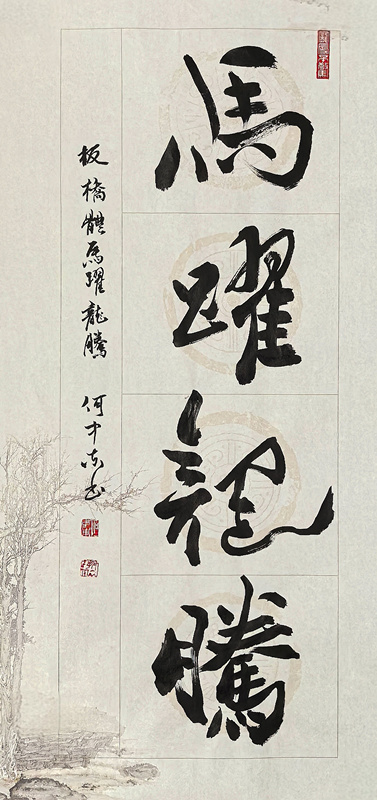 馬躍龍騰
板橋體馬躍龍騰 何中东书